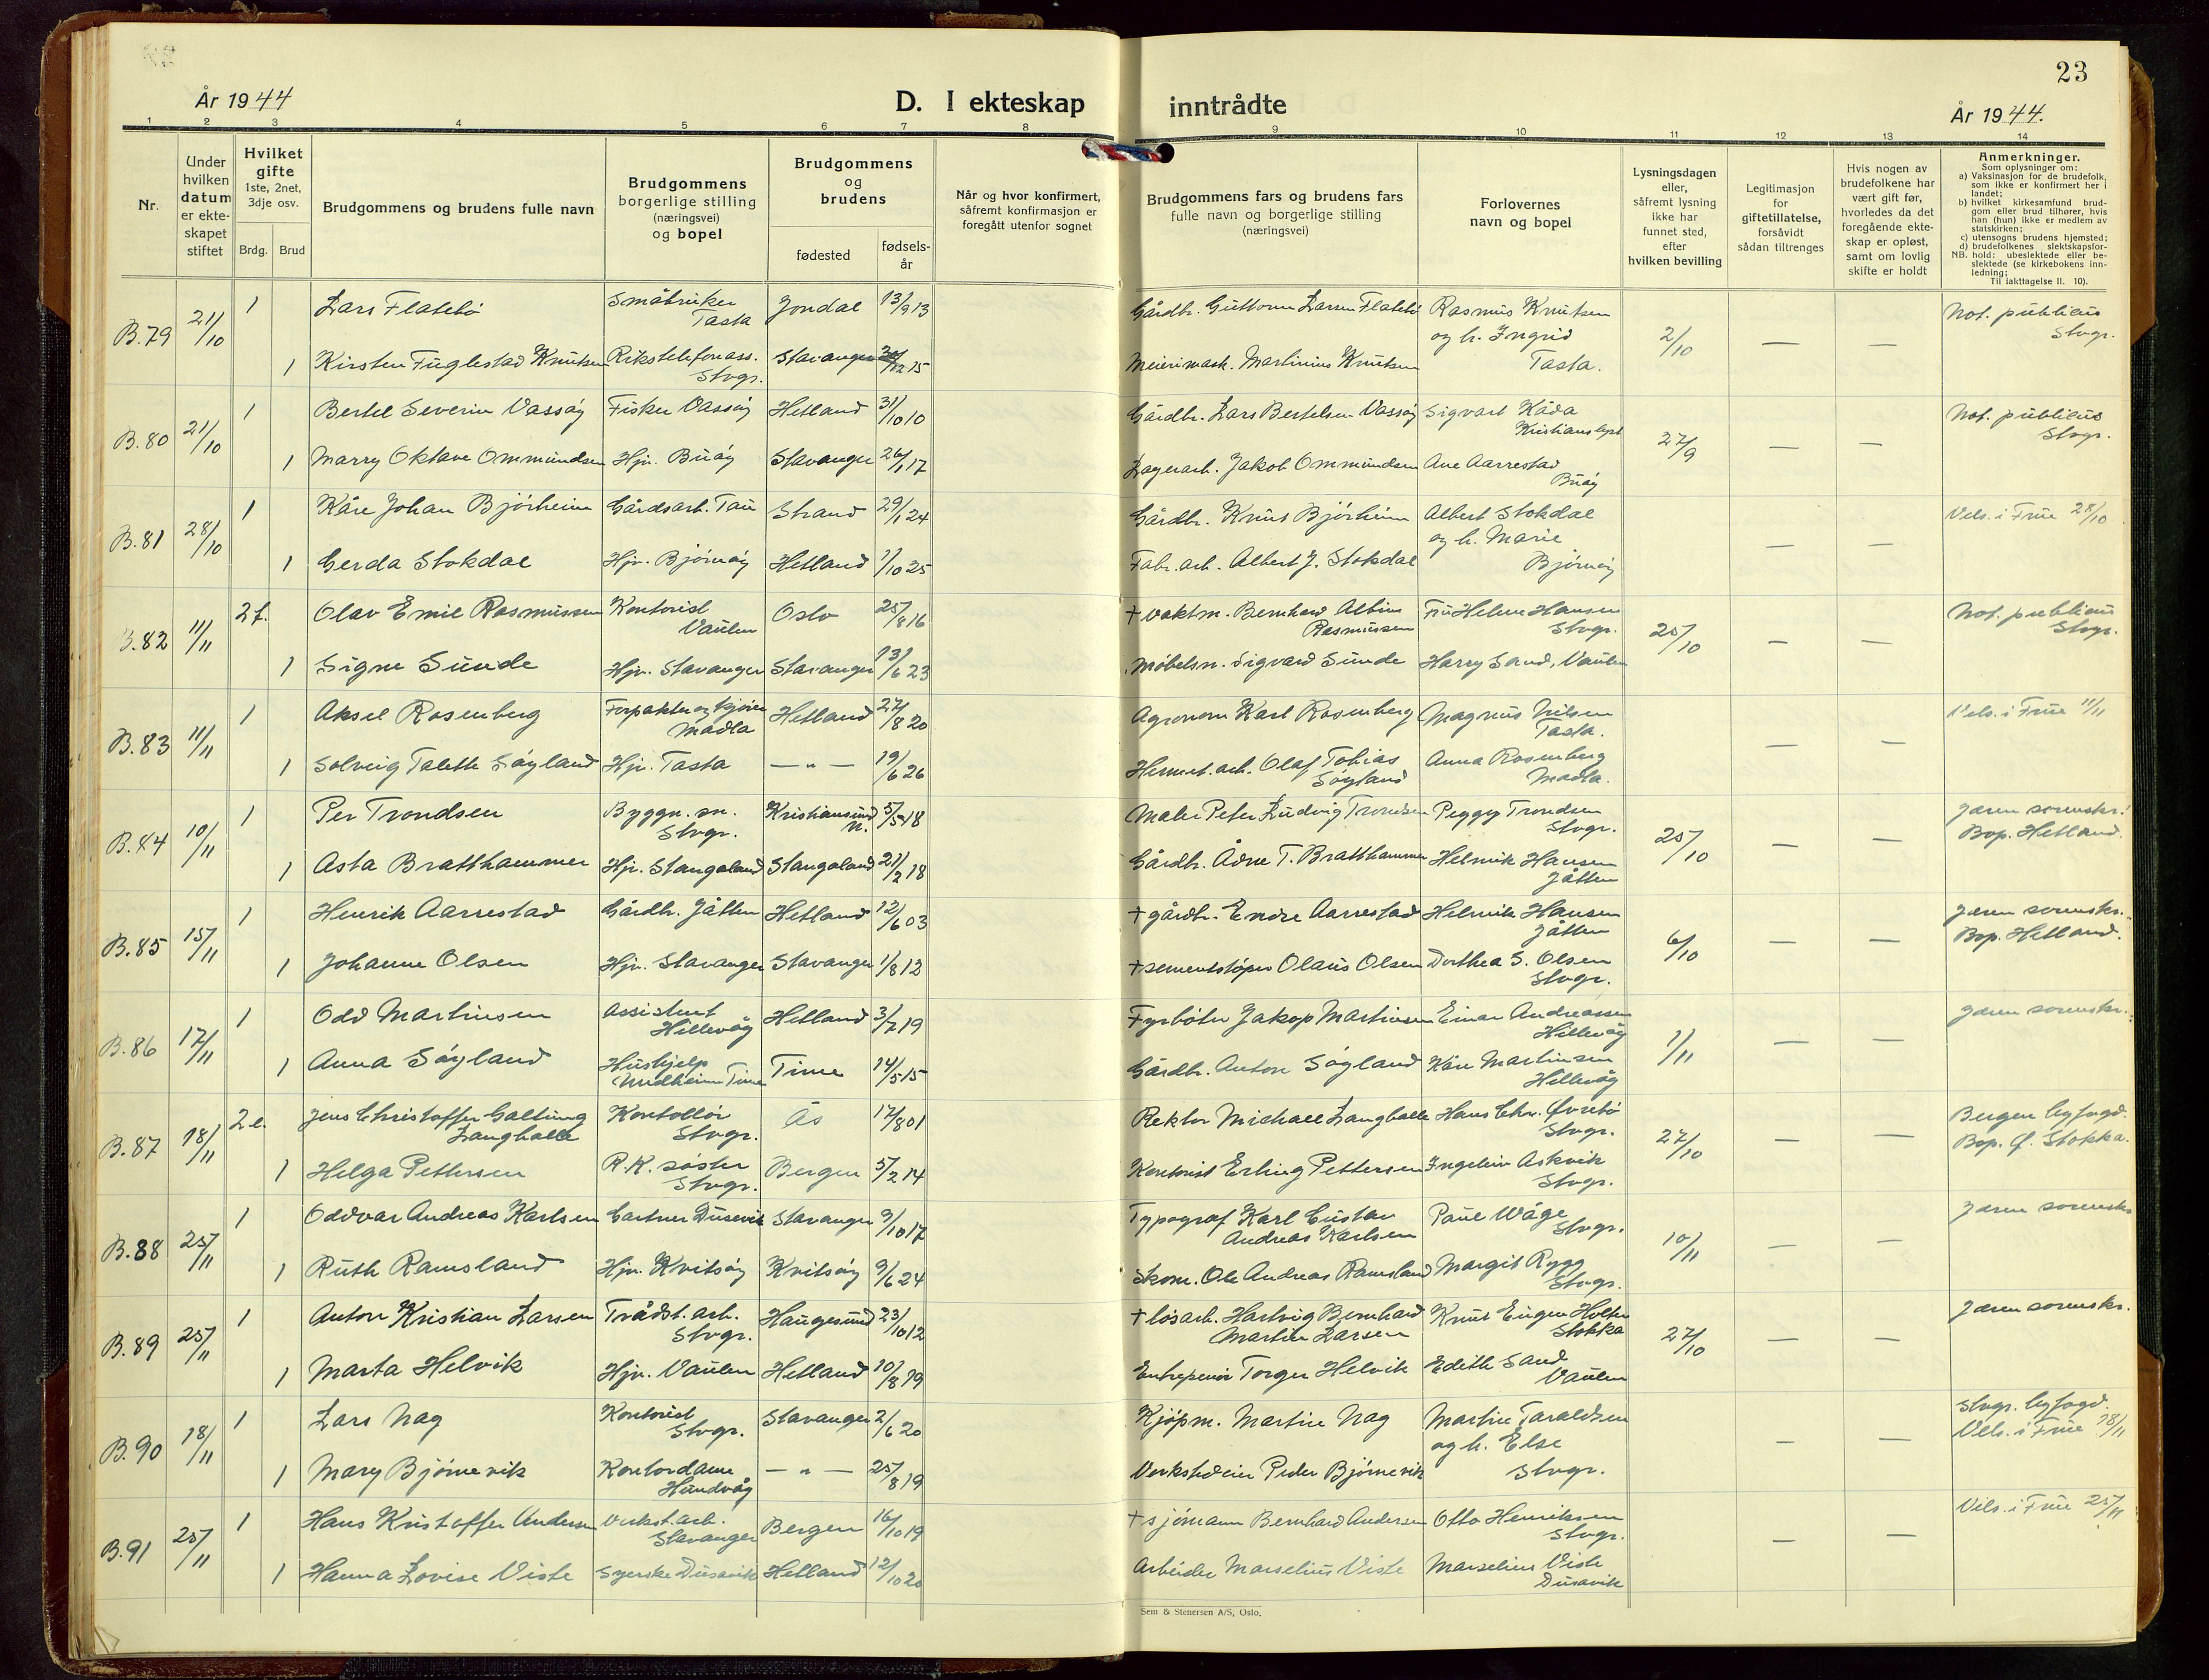 23
År 1944
D. I ekteskap inntrådte
År 1944.
1 2 3 4 5 6 7 8 9 10 11 12 13 14
Nr.
Under hvilken datum er ekte-skapet stiftet
Hvilket gifte 1ste, 2net, 3dje osv.
Brdg. Brud
Brudgommens og brudens fulle navn
Brudgommens borgerlige stilling (næringsvei) og bopel
Brudgommens og brudens
fødested
fødsels-år
Når og hvor konfirmert, såfremt konfirmasjon er foregått utenfor sognet
Brudgommens fars og brudens fars fulle navn og borgerlige stilling (næringsvei)
Forlovernes navn og bopel
Lysningsdagen eller, såfremt lysning ikke har funnet sted, efter hvilken bevilling
Legitimasjon for giftetillatelse, forsåvidt sådan tiltrenges
Hvis nogen av brudefolkene har vært gift før, hvorledes da det foregående ekte-skap er opløst, samt om lovlig skifte er holdt
Anmerkninger.
Som oplysninger om:
a) Vaksinasjon for de brudefolk, som ikke er konfirmert her i landet;
b) hvilket kirkesamfund brud-gom eller brud tilhører, hvis han (hun) ikke er medlem av statskirken;
c) utensogns brudens hjemsted;
d) brudefolkenes slektskapsfor-hold: ubeslektede eller be-slektede (se kirkebokens inn-ledning;
NB.
Til iakttagelse II. 10).
B.79 21/10 1 Lars Flatebø Småbruker Tasta Jondal 13/9 13 Gårdbr. Guttorm Larsen Flatebø Rasmus Knutsen og h. Ingrid Tasta. 2/10 — — Not. publicus Stvgr.
1 Kirsten Fuglestad Knutsen Rikstelefonass. Stvgr. Stavanger 12 15 Meierimask. Martinius Knutsen
B.80 21/10 1 Bertel Severin Vassøy Fisker Vassøy Hetland 31/10 10 Gårdbr. Lars Bertelsen Vassøy Sigvart Kåda 27/9 — — Not. publicus Stvgr.
1 Marry Oktave Ommundsen Hjv. Buøy Stavanger 26/1 17 Lagerarb. Jakob Ommundsen Ane Aarrestad Buøy
B.81 28/10 1 Kåre Johan Bjørheim Gårdsarb. Tau Strand 29/1 24 Gårdbr. Knut Bjørheim Albert Stokdal og h. Marie Bjørnøy — — Vels. i Frue 28/10
1 Gerda Stokdal Hjv. Bjørnøy Hetland 1/10 25 Fabr. arb. Albert J. Stokdal
B.82 11/11 2 f. Olav Emil Rasmussen Kontorist Vaulen Oslo 25/8 16 + vaktm. Bernhard Albin Rasmussen Fru Helene Hansen Stvgr. 25/10 — — Not. publicus Stvgr.
1 Signe Sunde Hjv. Stavanger Stavanger 13/6 23 Møbelsn. Sigvard Sunde Harry Sand, Vaulen
B.83 11/11 1 Aksel Rosenberg Forpakter og kjører Madla Hetland 27/8 20 Agronom Karl Rosenberg Magnus Nilsen Tasta. — — Vels. i Frue 11/11
1 Solveig Talette Søyland Hjv. Tasta — „ — 19/6 26 Hermet. arb. Olaf Tobias Søyland Anna Rosenberg Madla.
B.84 10/11 1 Per Trondsen Byggn. sn. Stvgr. Kristiansund N. 5/5 18 Maler Peter Ludvig Trondsen Peggy Trondsen Stvgr. 25/10 — — Jæren sorenskr. Bop. Hetland.
1 Asta Bratthammer Hjv. Stangaland Stangaland 21/2 18 Gårdbr. Ådne T. Bratthammer Helmik Hansen Jåtten
B.85 15/11 1 Henrik Aarrestad Gårdbr. Jåtten Hetland 12/6 03 + gårdbr. Endre Aarrestad Helmik Hansen Jåtten 6/10 — — Jæren sorenskr. Bop. Hetland.
1 Johanne Olsen Hjv. Stavanger Stavanger 1/8 12 + sementstøper Olaus Olsen Dorthea S. Olsen Stvgr.
B.86 17/11 1 Odd Martinsen Assistent Hillevåg Hetland 3/7 19 Fyrbøter Jakop Martinsen Einar Andreassen Hillevåg 1/11 — — Jæren sorenskr.
1 Anna Søyland Hushjelp Undheim Time Time 14/5 15 Gårdbr. Anton Søyland Kåre Martinsen Hillevåg
B.87 18/11 2 e. Jens Christoffer Galtung Langballe Kontorist Stvgr. Ås 17/8 01 Rektor Michael Langballe Hans Chr. Øvrebø Stvgr. 27/10 — — Bergen byfogd. Bop. Ø. Stokka.
1 Helga Pettersen R.K. søster Stvgr. Bergen 5/2 14 Kontorist Erling Pettersen Ingebjør Askvik Stvgr.
B.88 25/11 1 Oddvar Andreas Karlsen Gartner Dusevik Stavanger 9/10 17 Typograf Karl Gustav Andreas Karlsen Paul Wåge Stvgr. 10/11 — — Jæren sorenskr.
1 Ruth Ramsland Hjv. Kvitsøy Kvitsøy 9/6 24 Skom. Ole Andreas Ramsland Margit Rygg Stvgr.
B.89 25/11 1 Anton Kristian Larsen Trådst. arb. Stvgr. Haugesund 23/10 12 + løsarb. Hartvig Bernhard Martin Larsen Knut Eugen Holten Stokka 27/10 — — Jæren sorenskr.
1 Marta Helvik Hjv. Vaulen Hetland 10/8 19 Entreprenør Torger Helvik Edith Sand Vaulen
B.90 18/11 1 Lars Nag Kontorist Stvgr. Stavanger 2/6 20 Kjøpm. Martin Nag Martin Taraldsen og h. Else Stvgr. — — Stvgr. byfogd. Vels. i Frue 18/11
1 Mary Bjørnevik Kontordame Hundvåg — „ — 25/8 19 Verkstedeier Peder Bjørnevik
B.91 25/11 1 Hans Kristoffer Andersen Verkst. arb. Stavanger Bergen 16/10 19 + sjømann Bernhard Andersen Otto Henriksen Stvgr. — — Vels. i Frue 25/11
1 Hanna Lovise Viste Syerske Dusavik Hetland 12/10 20 Arbeider Marselius Viste Marselius Viste Dusavik
Sem & Stenersen A/S, Oslo.